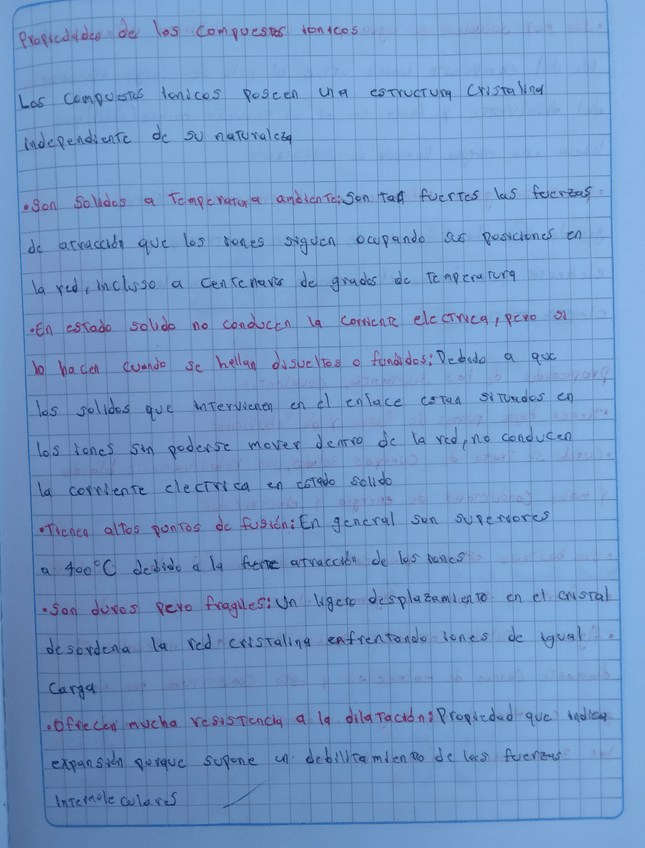 Propiedades de los Compuestos ionicos
Los compuestos ionicos poseen una estructura cristalina
independiente de su naturaleza
•Son Solidos a Temperatura ambiente: Son tan fuertes las fuerzas
de atracción que los iones siguen ocupando sus posiciones en
la red, incluso a centenares de grados de temperatura
•En estado solido no conducen la corriente electrica, pero si
lo hacen cuando se hallan disueltos o fundidos: Debido a que
los solidos que intervienen en el enlace estan situados en
los iones sin poderse mover dentro de la red, no conducen
la corriente electrica en estado solido
•Tienen altos puntos de fusión: En general son superiores
a 400°C debido a la fuerte atracción de los iones
•Son duros pero fragiles: Un ligero desplazamiento en el cristal
desordena la red cristalina enfrentando iones de igual
Carga
•Ofrecen mucha resistencia a la dilatación: Propiedad que indica
expansión porque supone un debilitamiento de las fuerzas
intermoleculares